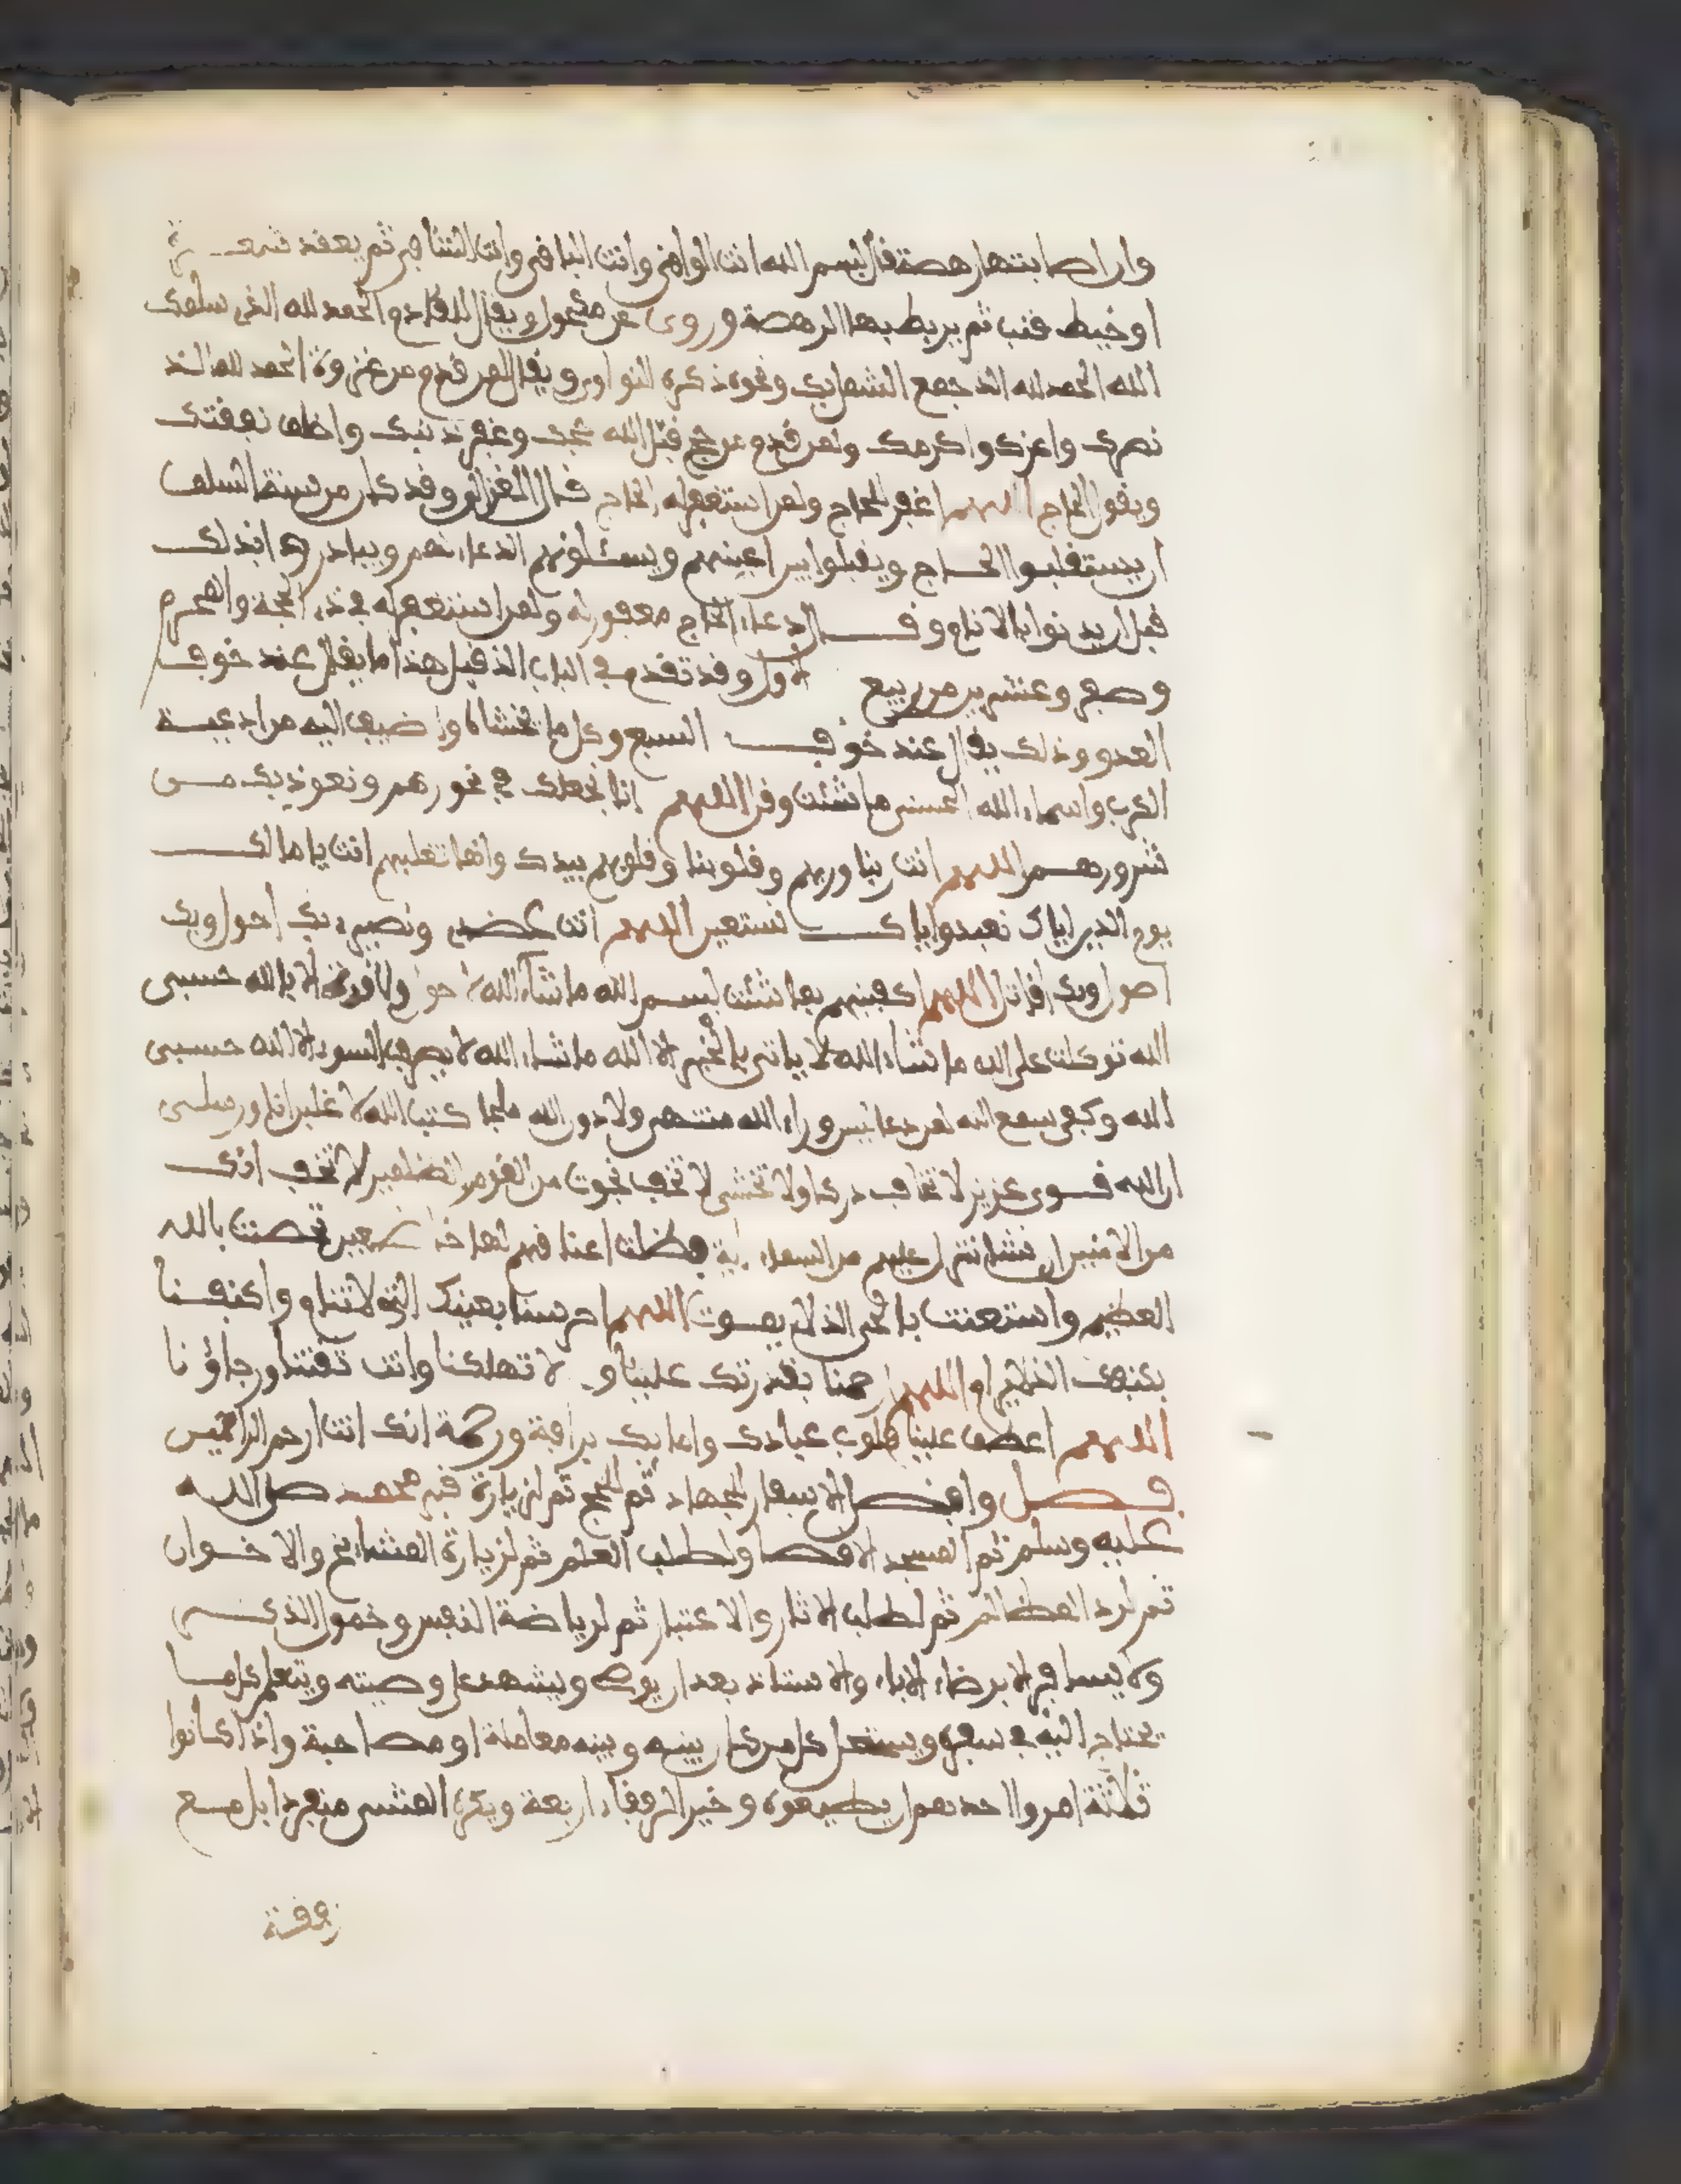 وان اصابتها رهصة قال بسم الله انت الواقي وانت الباقي وانت الشافي ثم يعقد شعرة
او خيط قنب ثم يربط بها الرهصة وروي عن مكحول ويقال للقادم الحمد لله الذي سلمك
الله الحمد لله الذ جمع الشمل بك ونحوه ذكره النواوي ويقال لمن قدم من غزوة الحمد لله الذ
نصرك واعزك واكرمك ولمن قدم من حج قبل الله حجك وغفر ذنبك واخلف نفقتك
ويقول الحاج اللهم اغفر للحاج ولمن استغفر له الحاج قال الغزالي وقد كان من سنة السلف
ان يستقبلوا الحاج ويقبلوا بين اعينهم ويسئلونهم الدعاء لهم ويبادروهم بذلك
قبل ان يدنوا بالاثام وقال دعاء الحاج مغفور له ولمن استغفر له في ذي الحجة والمحرم
وصفر وعشرين من ربيع الاول وقد تقدم في الباب الذ قبل هذا ما يقال عند خوف
العدو وذلك يقال عند خوف السبع وكل ما تخشاه واضيف اليه من ادعية
الكرب واسماء الله الحسنى ما شئت وقل اللهم انا نجعلك في نحورهم ونعوذ بك من
شرورهم اللهم انت ربنا وربهم وقلوبنا وقلوبهم بيدك وانما تغلبهم انت يا مالك
يوم الدين اياك نعبد واياك نستعين اللهم انت عضدي ونصيري بك احول وبك
اصول وبك اقاتل اللهم اكفنيهم بما شئت بسم الله ما شاء الله لا حول ولا قوة الا بالله حسبي
الله توكلت على الله ما شاء الله لا ياتي بالخير الا الله ما شاء الله لا يصرف السوء الا الله حسبي
الله وكفى سمع الله لمن دعا ليس وراء الله منتهى ولا دون الله ملجا كتب الله لاغلبن انا ورسلي
ان الله قوي عزيز لا تخاف دركا ولا تخشى لا تخف نجوت من القوم الظلمين لا تخف انك
من الامنين ان نشا ننزل عليهم من السماء اية فظلت اعناقهم لها خاضعين تحصنت بالله
العظيم واستعنت بالحي الذ لا يموت اللهم احرسنا بعينك التي لا تنام واكنفنا
بكنفك الذ لا يرام اللهم ارحمنا بقدرتك علينا و لا تهلكنا وانت ثقتنا ورجاؤنا
اللهم اعطف علينا قلوب عبادك وامايك برافة ورحمة انك انت ارحم الراحمين
فصل وافضل الاسفار للجهاد ثم للحج ثم لزيارة قبر محمد صلى الله
عليه وسلم ثم المسجد الاقصا ولطلب العلم ثم لزيارة المشايخ والاخوان
ثم لرد المظالم ثم لطلب الاثار والاعتبار ثم لرياضة النفس وخمول الذكر
ولا يسافر الا برضاء الاباء والاستاذ بعد ان يوصي ويشهد على وصيته ويتعلم كل ما
يحتاج اليه في سفره ويستحل كل من كان بينه وبينه معاملة او مصاحبة واذا كانوا
ثلثة امروا احدهم ان يطيعوه وخير الرفقاء اربعة ويكره المشي منفردا بل مع
رفقة